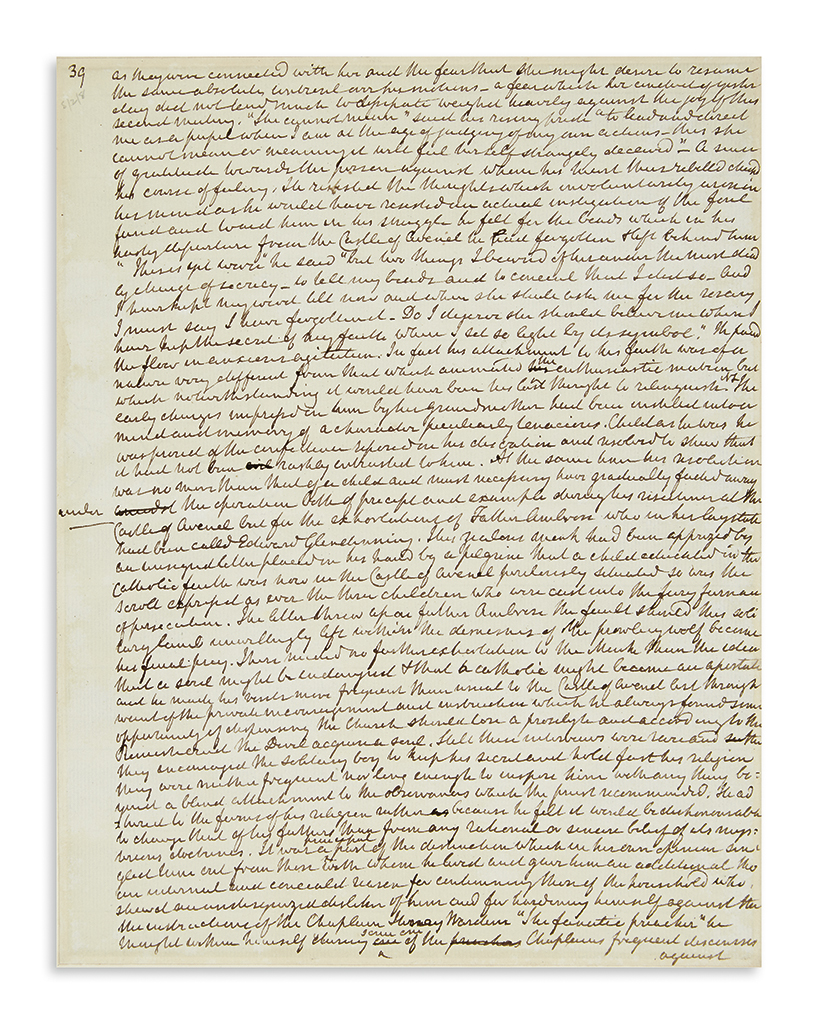 39
as they were connected with her and the fear that she might desire to resume
the same absolute controul over his motions – a fear which her conduct of yester
day did not tend much to dissipate weighed heavily against the joy of this
second meeting. "She cannot mean" said his rising pride "to lead and direct
me as a pupil when I am at the age of judging of my own actions – this she
cannot mean or meaning it will feel herself strangely deceived" – A sense
of gratitude towards the person against whom his heart thus rebelled checkd
his course of feeling. He resisted the thoughts which involuntarily arose in
his mind as he would have resisted an actual instigation of the foul
fiend and to aid him in his struggle he felt for the beads which in his
hasty departure from the Castle of Avenel he had forgotten & left behind him
"This is yet worse" he said "but two things I learnd of her under the most dead
ly charge of secrecy – to tell my beads and to conceal that I did so – and
I have kept my word till now and when she shall ask me for the rosary
I must say I have forgotten it – Do I deserve she should believe me when I
have kept the secret of my faith when I set so light by its symbol." He paced
the floor in anxious agitation. In fact his attachment to his faith was of a
nature very different from that which animated the enthusiastic matron but
which notwithstanding it would have been his last thought to relinquish. NL The
early charges impressd on him by his grandmother had been instilled into a
mind and memory of a character peculiarly tenacious. Child as he was he
was proud of the confidence reposed in his discretion and resolved to shew that
it had not been rashly intrusted to him. At the same time his resolution
was no more than that of a child and must necessarily have gradually faded away
under the operation both of precept and example during his residence at the
Castle of Avenel but for the exhortations of Father Ambrose who in his lay state
had been called Edward Glendinning. This zealous monk had been apprized by
an unsigned letter placed in his hand by a pilgrim that a child educated in the
Catholic faith was now in the Castle of Avenel perilously situated so was the
scroll expressd as ever the three children who were cast into the fiery furnace
of persecution. The letter threw upon father Ambrose the fault should this soli
tary lamb unwillingly left within the demesnes of the prowling wolf become
his final prey. There needed no farther exhortation to the Monk than the idea
that a soul might be endangerd & that a catholic might become an apostate
and he made his visits more frequent than usual to the Castle of Avenel lest through
want of the private incouragement and instruction which he always found some
opportunity of dispensing the Church should lose a proselyte and according to the
Romish creed the Devil acquire a soul. Still these interviews were rare and tho
they encouraged the solitary boy to keep his secret and hold fast his religion
they were neither frequent nor long enough to inspire him with any thing be=
yond a blind attachment to the observances which the priest recommended. He ad
hered to the forms of his religion rather because he felt it would be dishonourable
to change that of his fathers than from any rational or sincere belief of its mys=
terious doctrines. It was a principal part of the distinction which in his own opinion sin
gled him out from those with whom he lived and gave him an additional tho
an internal and concealed reason for contemning those of the household who
shewd an undisguized dislike of him and for hardening himself against the
instructions of the Chaplain Henry Warden "The fanatic preacher" he
thought within himself during some one of the Chaplains frequent discourses
against